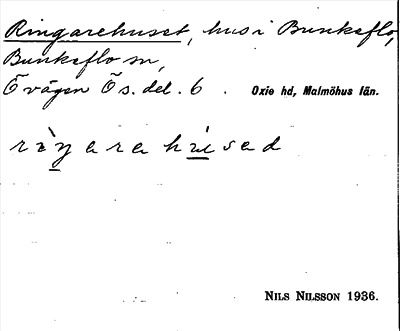 Ringarehuset, hus i Bunkeflo,
Bunkeflo sn,
Övägen Ö s. del. 6. Oxie hd, Malmöhus län.
NILS NILSSON 1936.